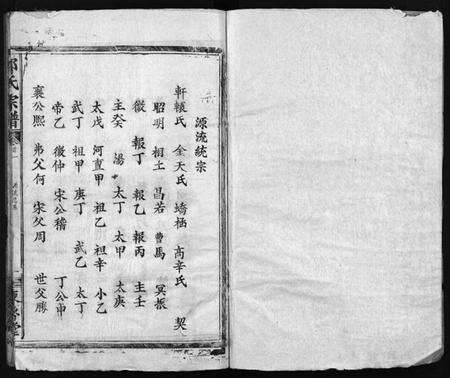 源流統宗
軒轅氏 金天氏 蟜極 高辛氏 契
昭明 相土 昌若 曹馬 冥 振
微 報丁 報乙 報丙 主壬
主癸 湯 太丁 太甲 太庚
太戊 河亶甲 祖乙 祖辛 小乙
武丁 祖甲 庚丁 武乙 太丁
帝乙 微仲 宋公稽 丁公申
襄公熙 弗父何 宋父周 世父勝
氏宗譜